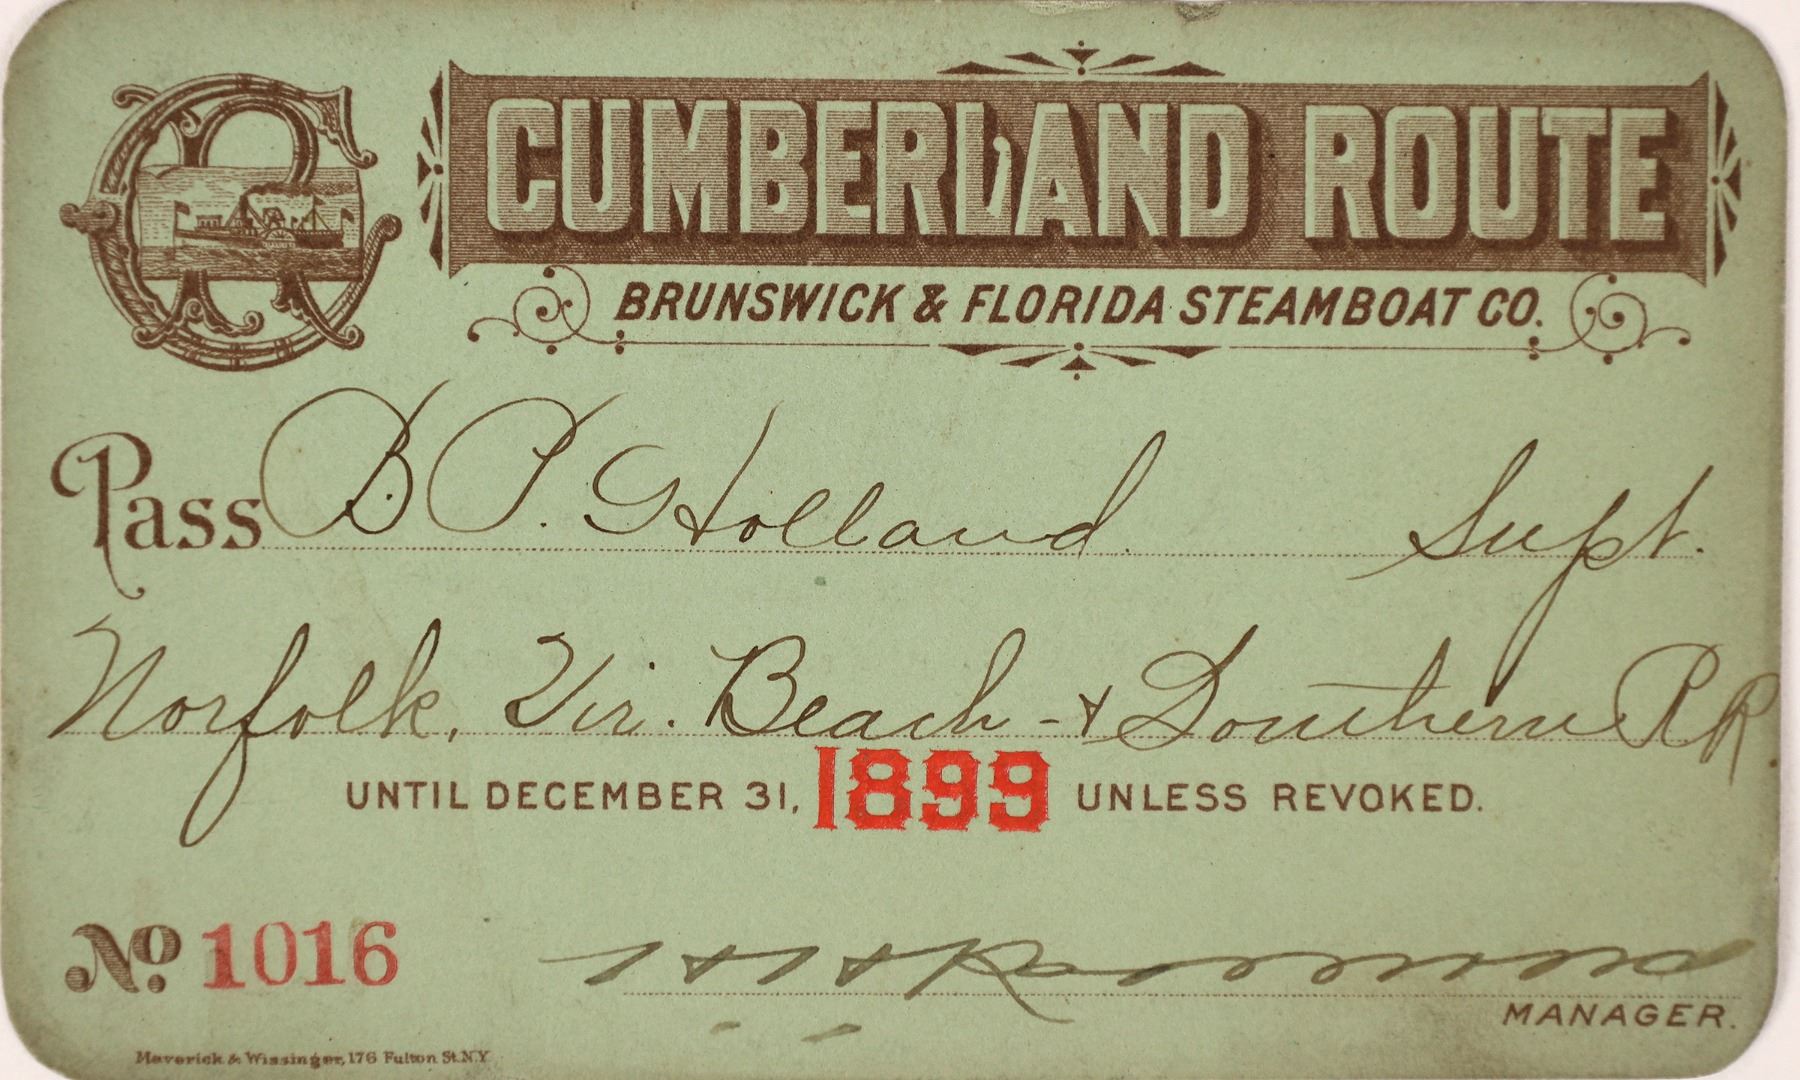 CR
CUMBERLAND ROUTE
BRUNSWICK & FLORIDA STEAMBOAT CO.
Pass B. P. Holland. Supt.
Norfolk, Vir. Beach - & Southern RR.
UNTIL DECEMBER 31, 1899 UNLESS REVOKED.
No. 1016
MANAGER.
Maverick & Wissinger, 176 Fulton St. N.Y.